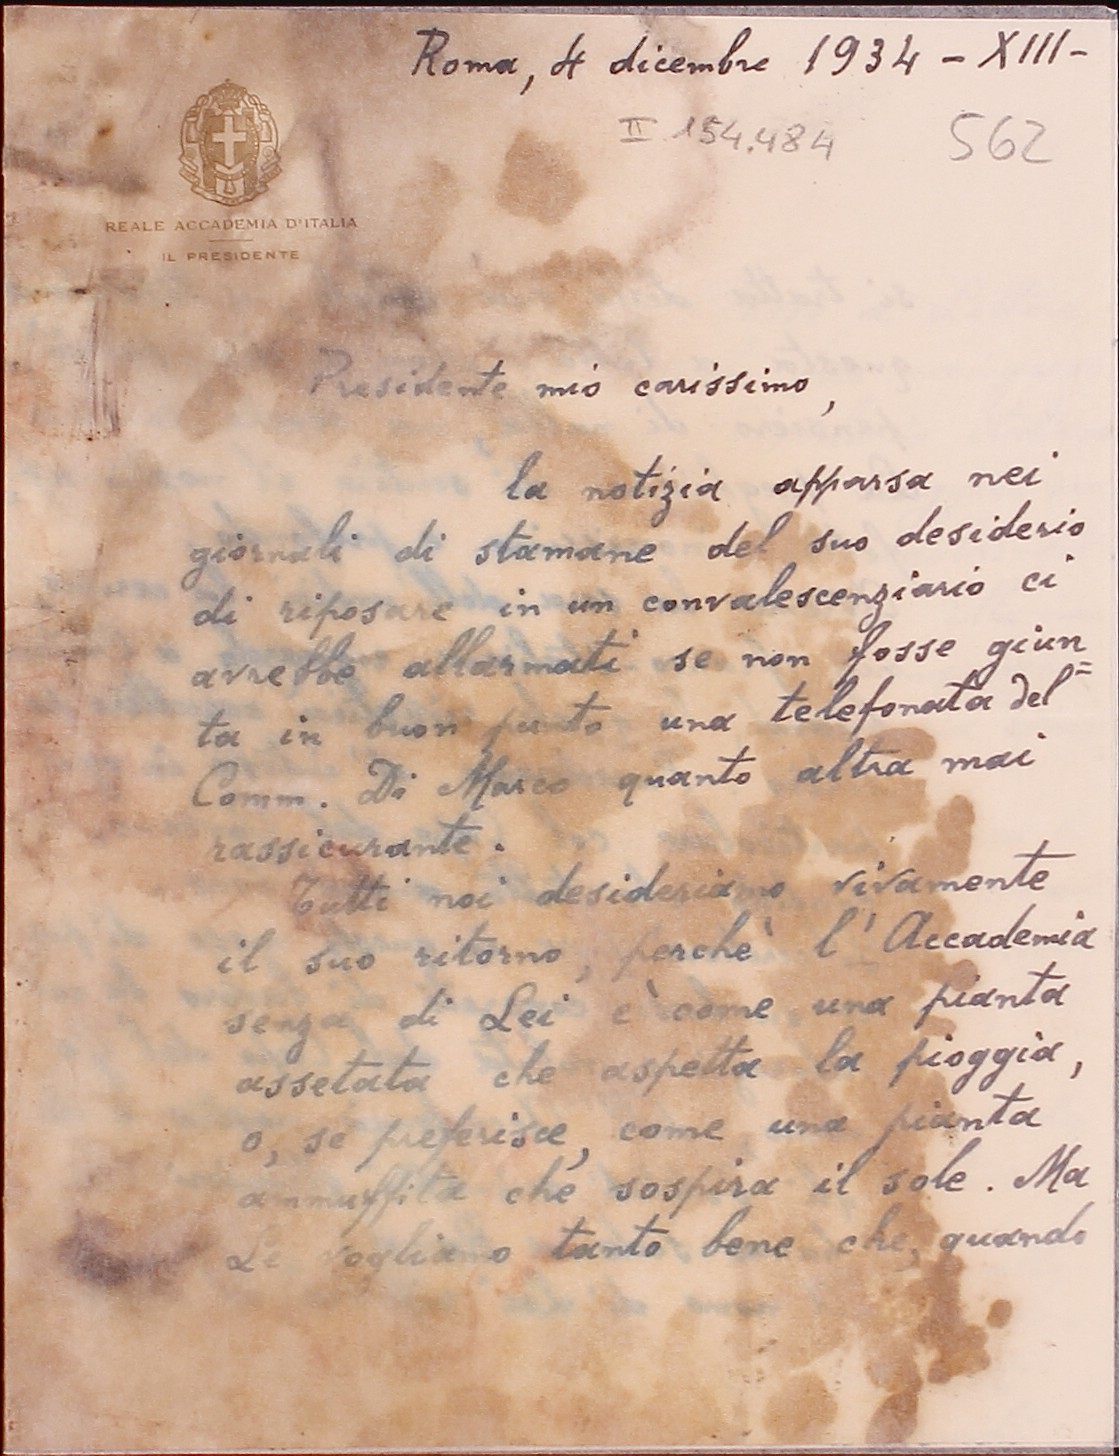 Roma, 4 dicembre 1934 - XIII-
II 154.484 562
REALE ACCADEMIA D'ITALIA
IL PRESIDENTE
Presidente mio carissimo,
la notizia apparsa nei
giornali di stamane del suo desiderio
di riposare in un convalescenziario ci
avrebbe allarmati se non fosse giun=
ta in buon punto una telefonata del
Comm. Di Marco quanto altra mai
rassicurante.
Tutti noi desideriamo vivamente
il suo ritorno, perchè l'Accademia
senza di Lei è come una pianta
assetata che aspetta la pioggia,
o, se preferisce, come una pianta
ammuffita che sospira il sole. Ma
Le vogliamo tanto bene che, quando